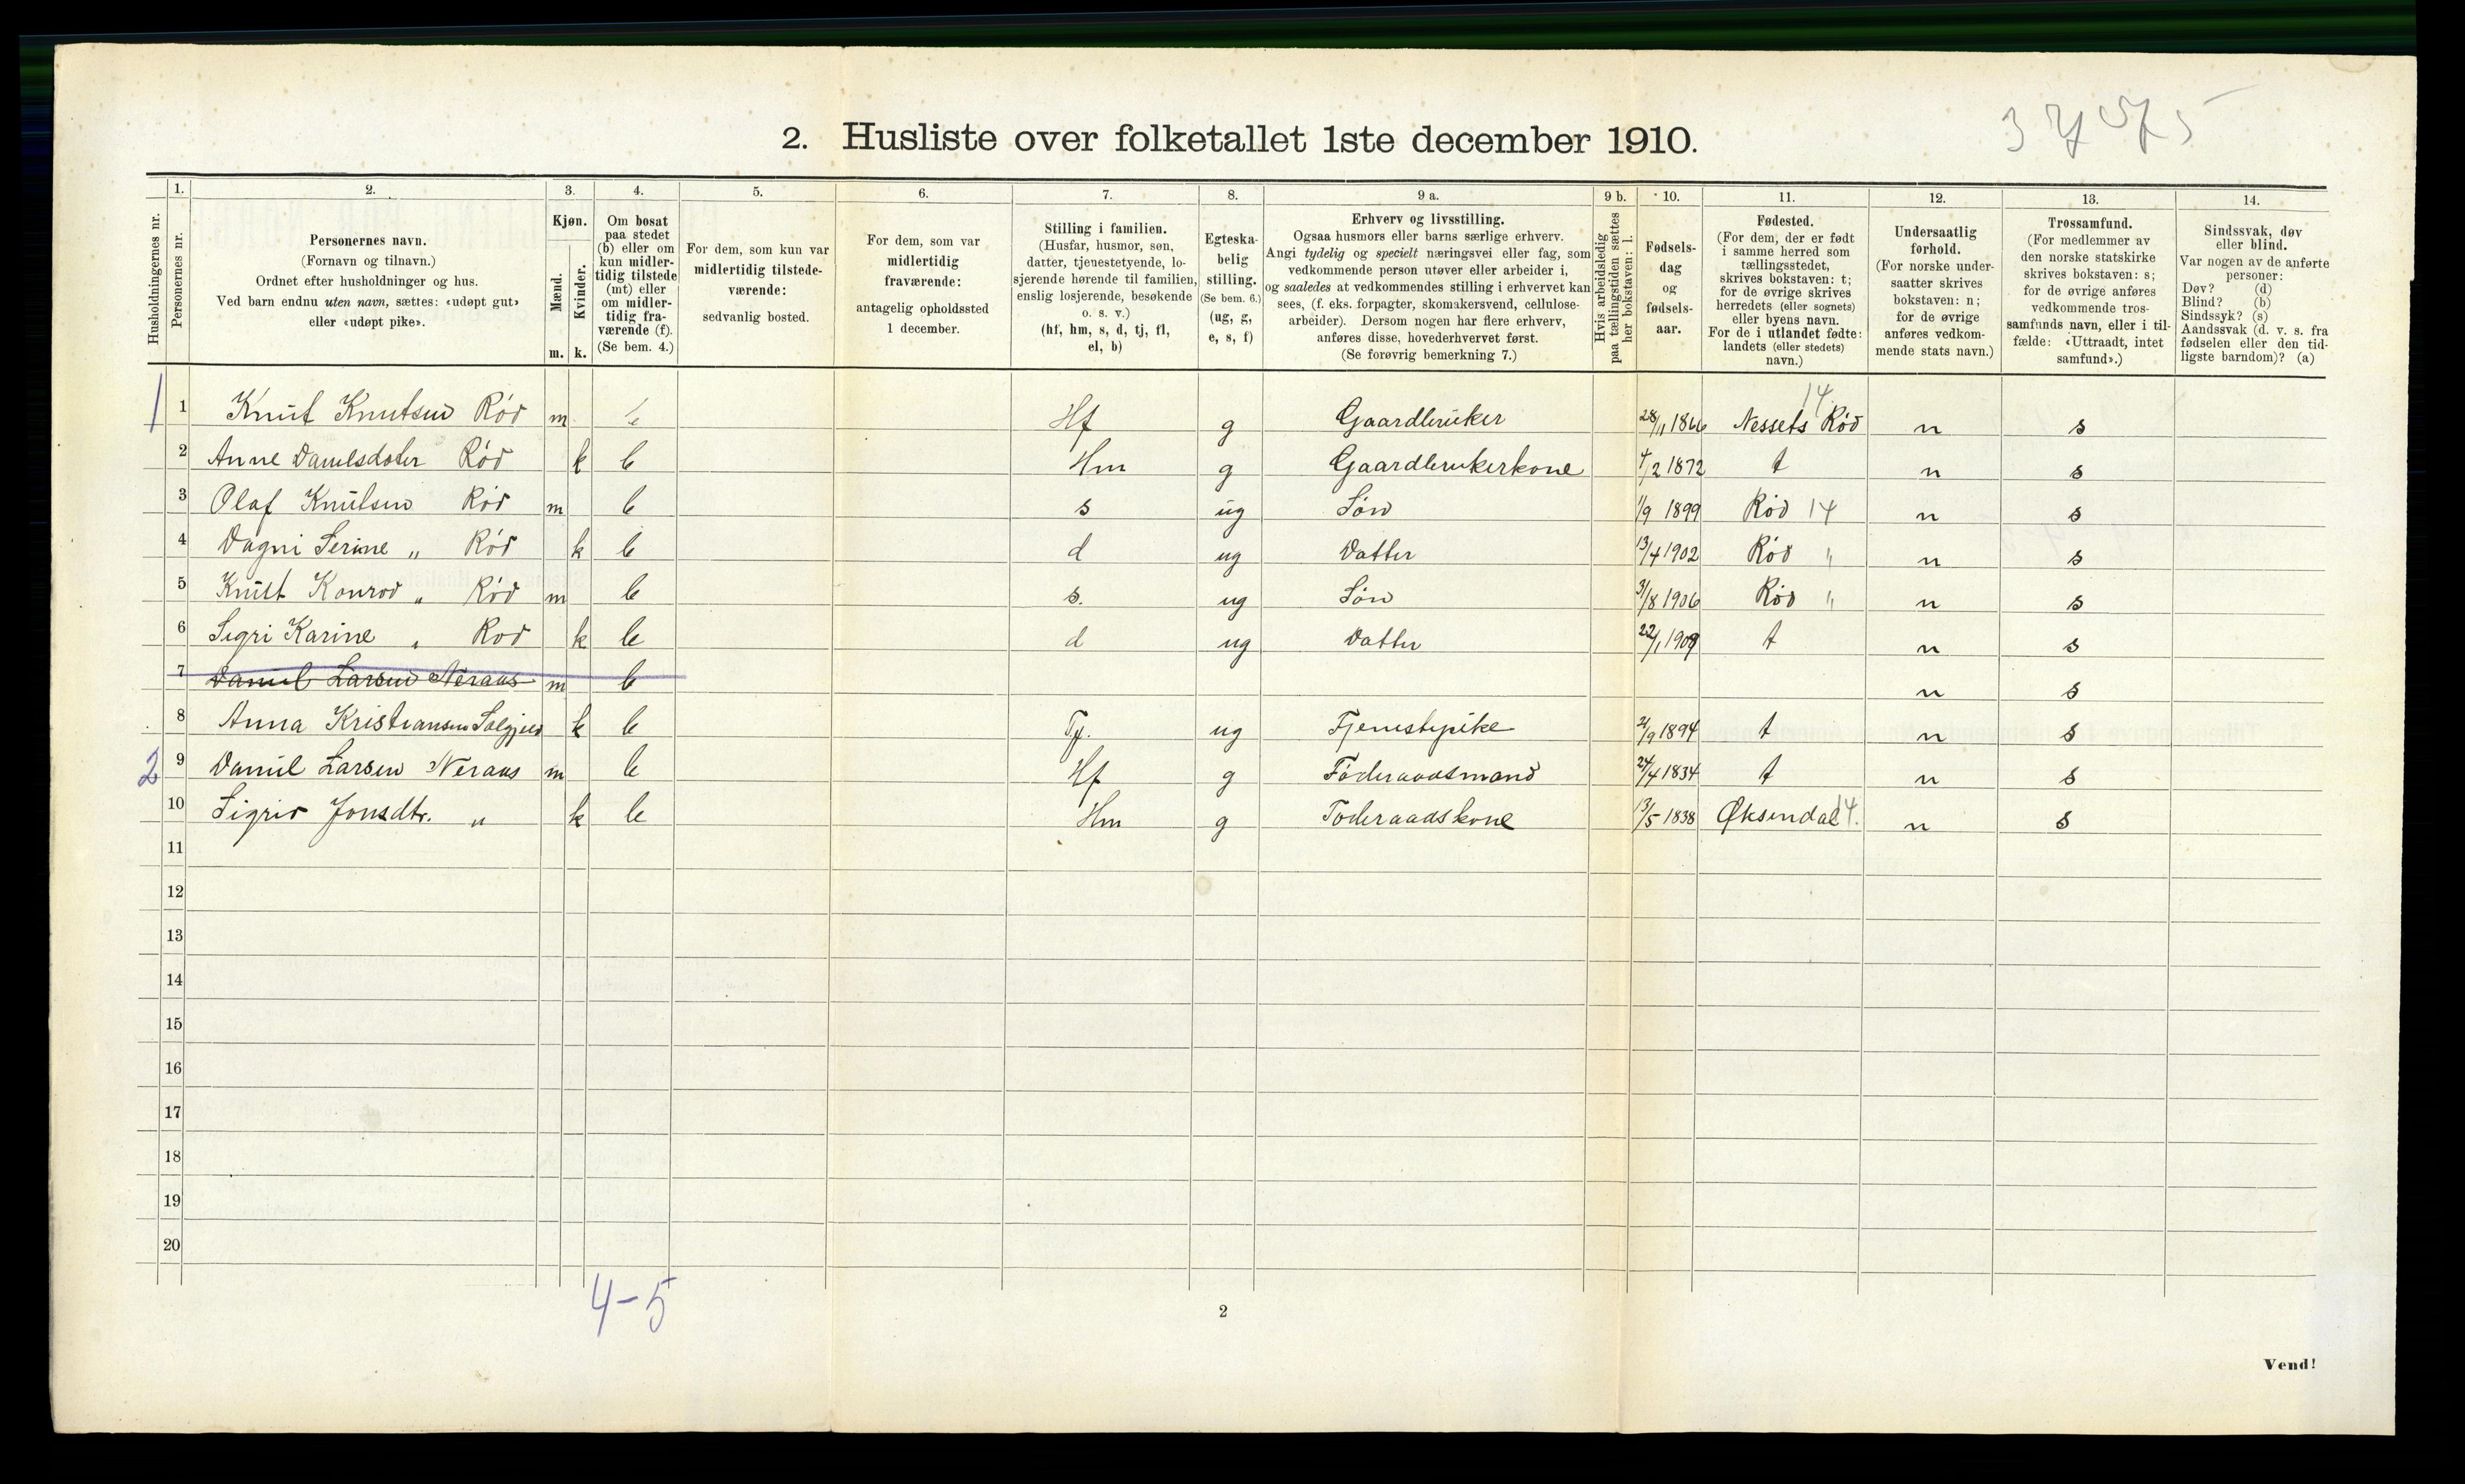 3 7 5 5
2. Husliste over folketallet 1ste december 1910.
Husholdningernes nr.
1. Personernes nr.
2. Personernes navn. (Fornavn og tilnavn.) Ordnet efter husholdninger og hus. Ved barn endnu uten navn, sættes: «udøpt gut» eller «udøpt pike».
3. Kjøn. Mænd. m. Kvinder. k.
4. Om bosat paa stedet (b) eller om kun midlertidig tilstede (mt) eller om midlertidig fraværende (f). (Se bem. 4.)
5. For dem, som kun var midlertidig tilstedeværende: sedvanlig bosted.
6. For dem, som var midlertidig fraværende: antagelig opholdssted 1 december.
7. Stilling i familien. (Husfar, husmor, søn, datter, tjenestetyende, losjerende hørende til familien, enslig losjerende, besøkende o. s. v.) (hf, hm, s, d, tj, fl, el, b)
8. Egteskabelig stilling. (Se bem. 6.) (ug, g, e, s, f)
9 a. Erhverv og livsstilling. Ogsaa husmors eller barns særlige erhverv. Angi tydelig og specielt næringsvei eller fag, som vedkommende person utøver eller arbeider i, og saaledes at vedkommendes stilling i erhvervet kan sees, (f. eks. forpagter, skomakersvend, cellulosearbeider). Dersom nogen har flere erhverv, anføres disse, hovederhvervet først. (Se forøvrig bemerkning 7.)
9 b. Hvis arbeidsledig paa tællingstiden sættes her bokstaven: l.
10. Fødselsdag og fødselsaar.
11. Fødested. (For dem, der er født i samme herred som tællingsstedet, skrives bokstaven: t; for de øvrige skrives herredets (eller sognets) eller byens navn. For de i utlandet fødte: landets (eller stedets) navn.)
12. Undersaatlig forhold. (For norske undersaatter skrives bokstaven: n; for de øvrige anføres vedkommende stats navn.)
13. Trossamfund. (For medlemmer av den norske statskirke skrives bokstaven: s; for de øvrige anføres vedkommende trossamfunds navn, eller i tilfælde: «Uttraadt, intet samfund».)
14. Sindssvak, døv eller blind. Var nogen av de anførte personer: Døv? (d) Blind? (b) Sindssyk? (s) Aandssvak (d. v. s. fra fødselen eller den tidligste barndom)? (a)
1 1 Knut Knutsen Rød m b Hf g Gaardbruker 28/11 1866 Nessets Rød 14 n s
2 Anne Danielsdoter Rød k b Hm g Gaardbrukerkone 4/2 1872 t n s
3 Olaf Knutsen Rød m b s ug Søn 1/9 1899 Rød 14 n s
4 Dagni Serine „ Rød k b d ug Datter 13/4 1902 Rød „ n s
5 Knut Konrod „ Rød m b s. ug Søn 3/8 1906 Rød „ n s
6 Sigri Karine „ Rød k b d ug Datter 22/1 1909 t n s
7 Daniel Larsen Neraas m b n s
8 Anna Kristiansen k b Tj. ug Tjenestepike 21/9 1894 t n s
2 9 Daniel Larsen Neraas m b Hf g Føderaadsmand 24/4 1834 t n s
10 Sigrid Jonsdtr. „ k b Hm g Føderaadskone 13/5 1838 Øksendal 14. n s
11
12
13
14
15
16
17
18
19
20
4-5
2
Vend!